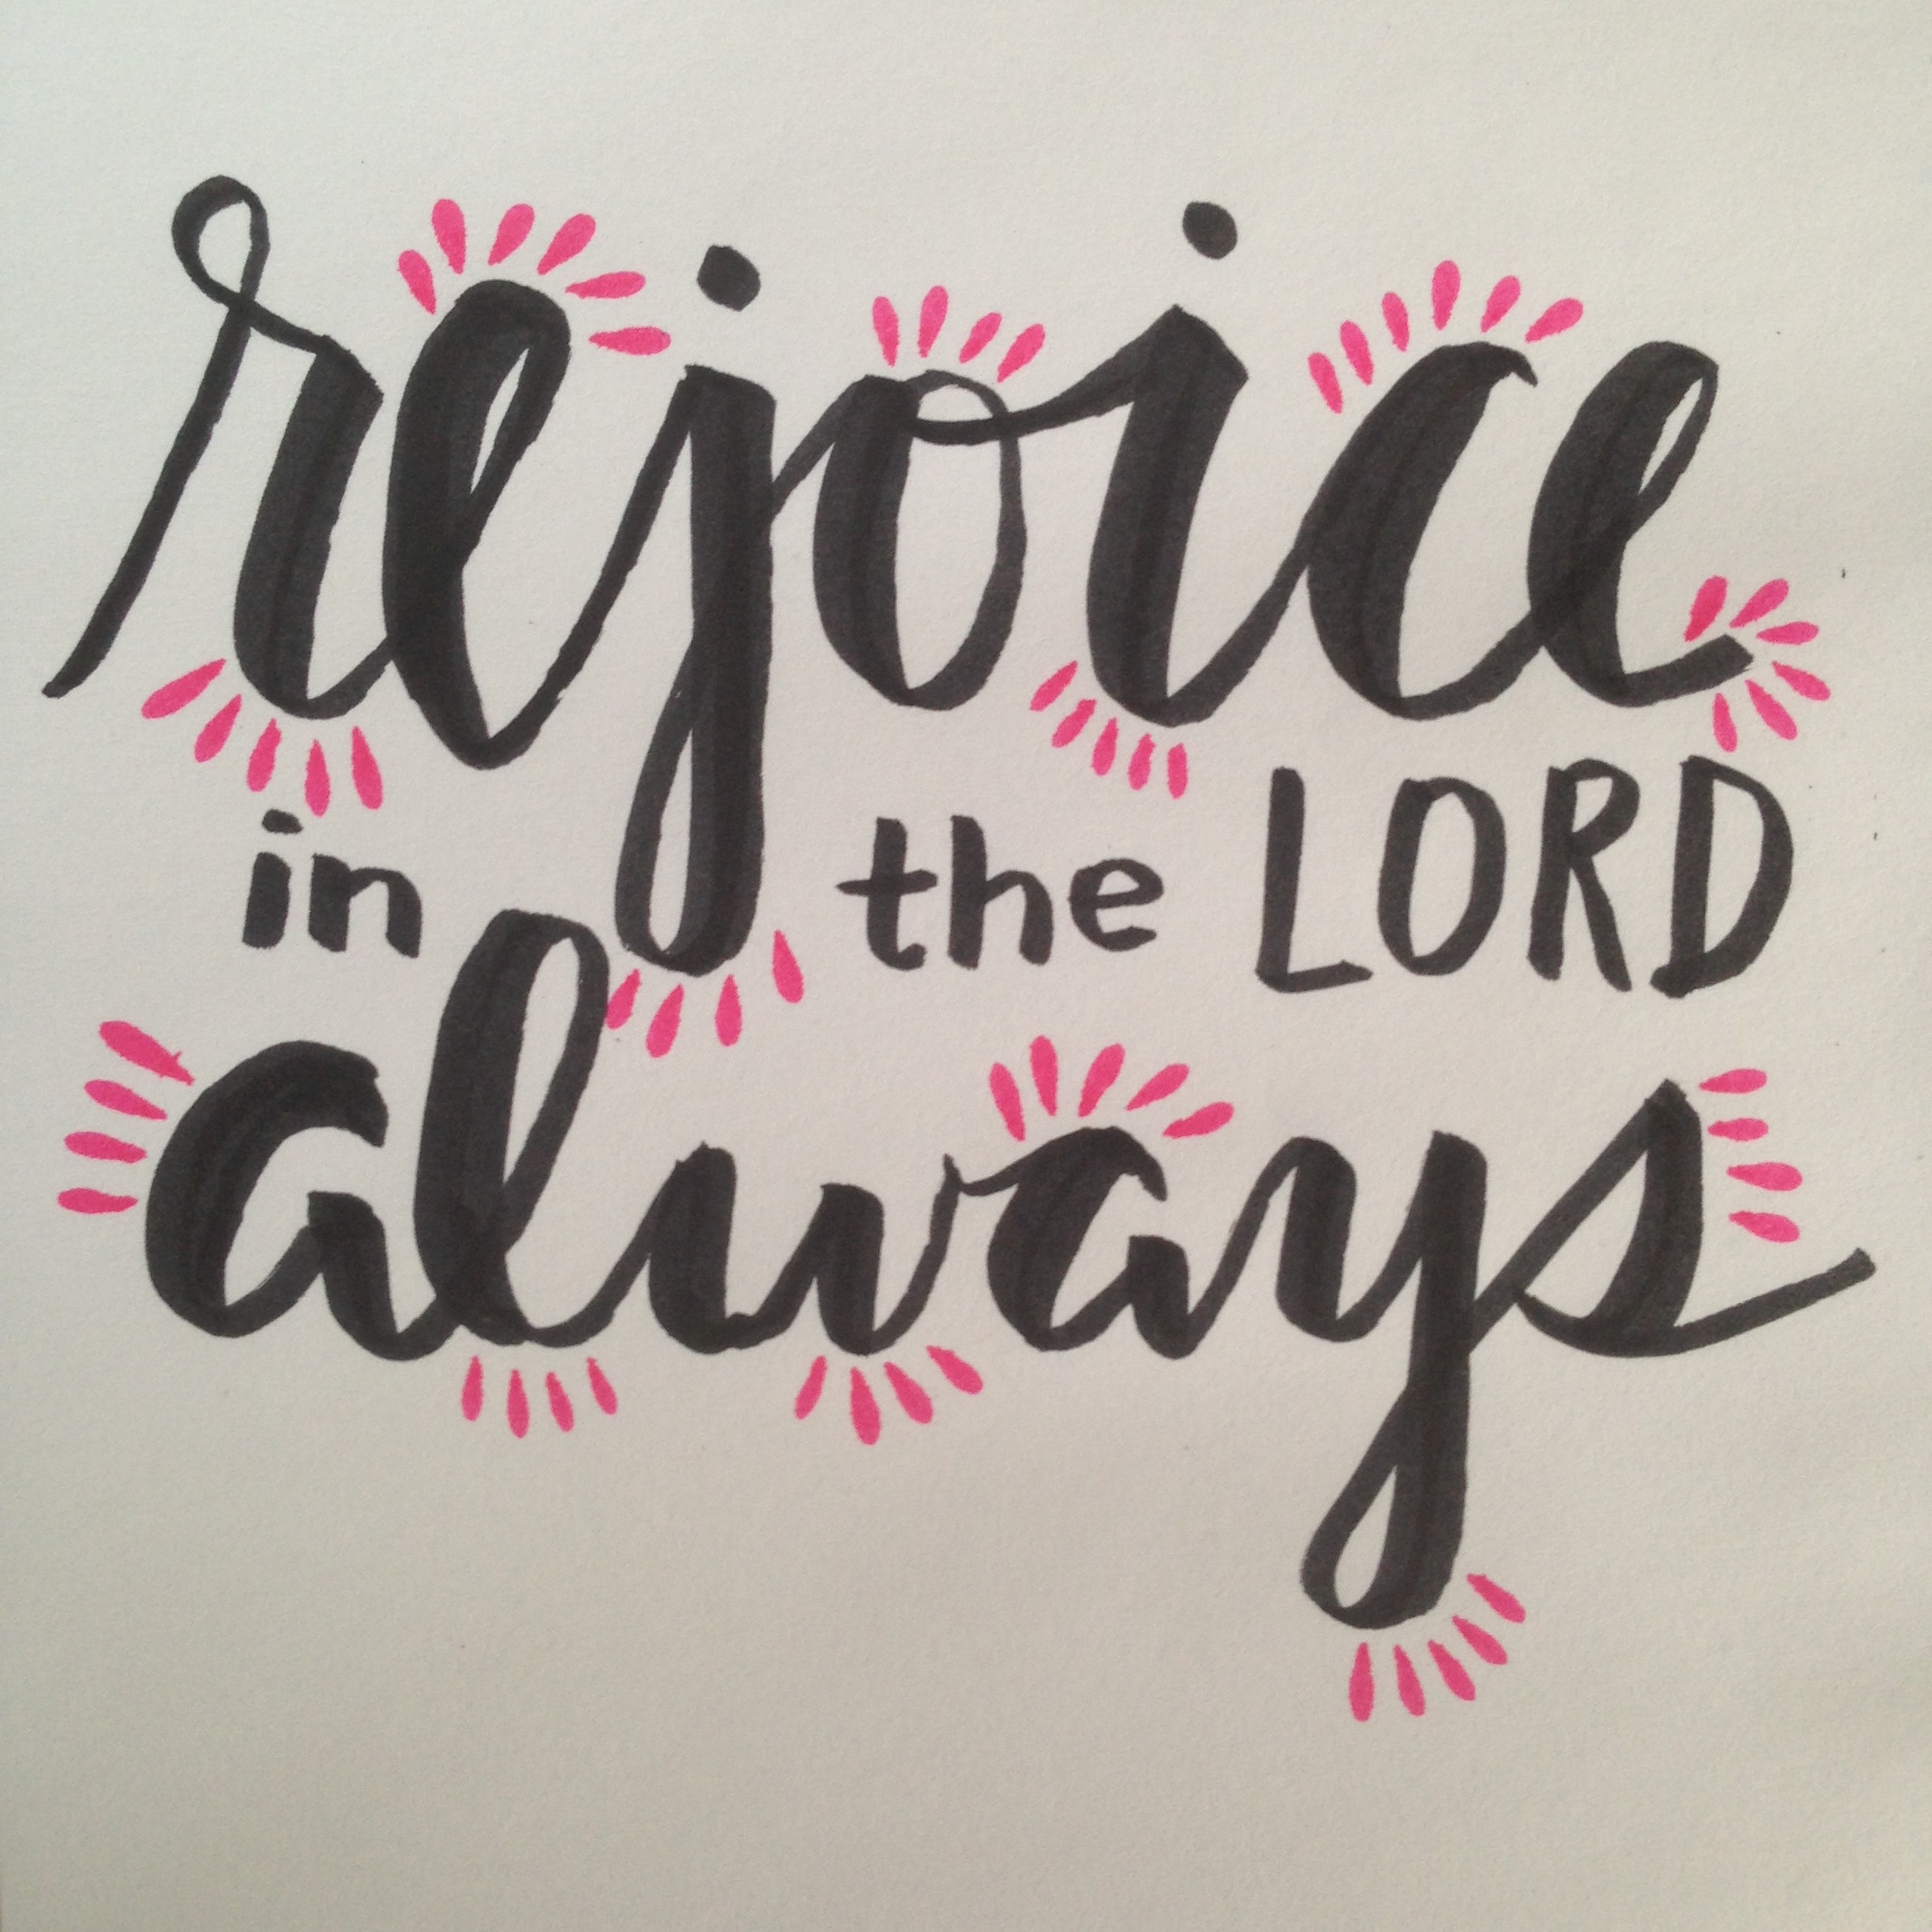 rejoice
in the LORD
always